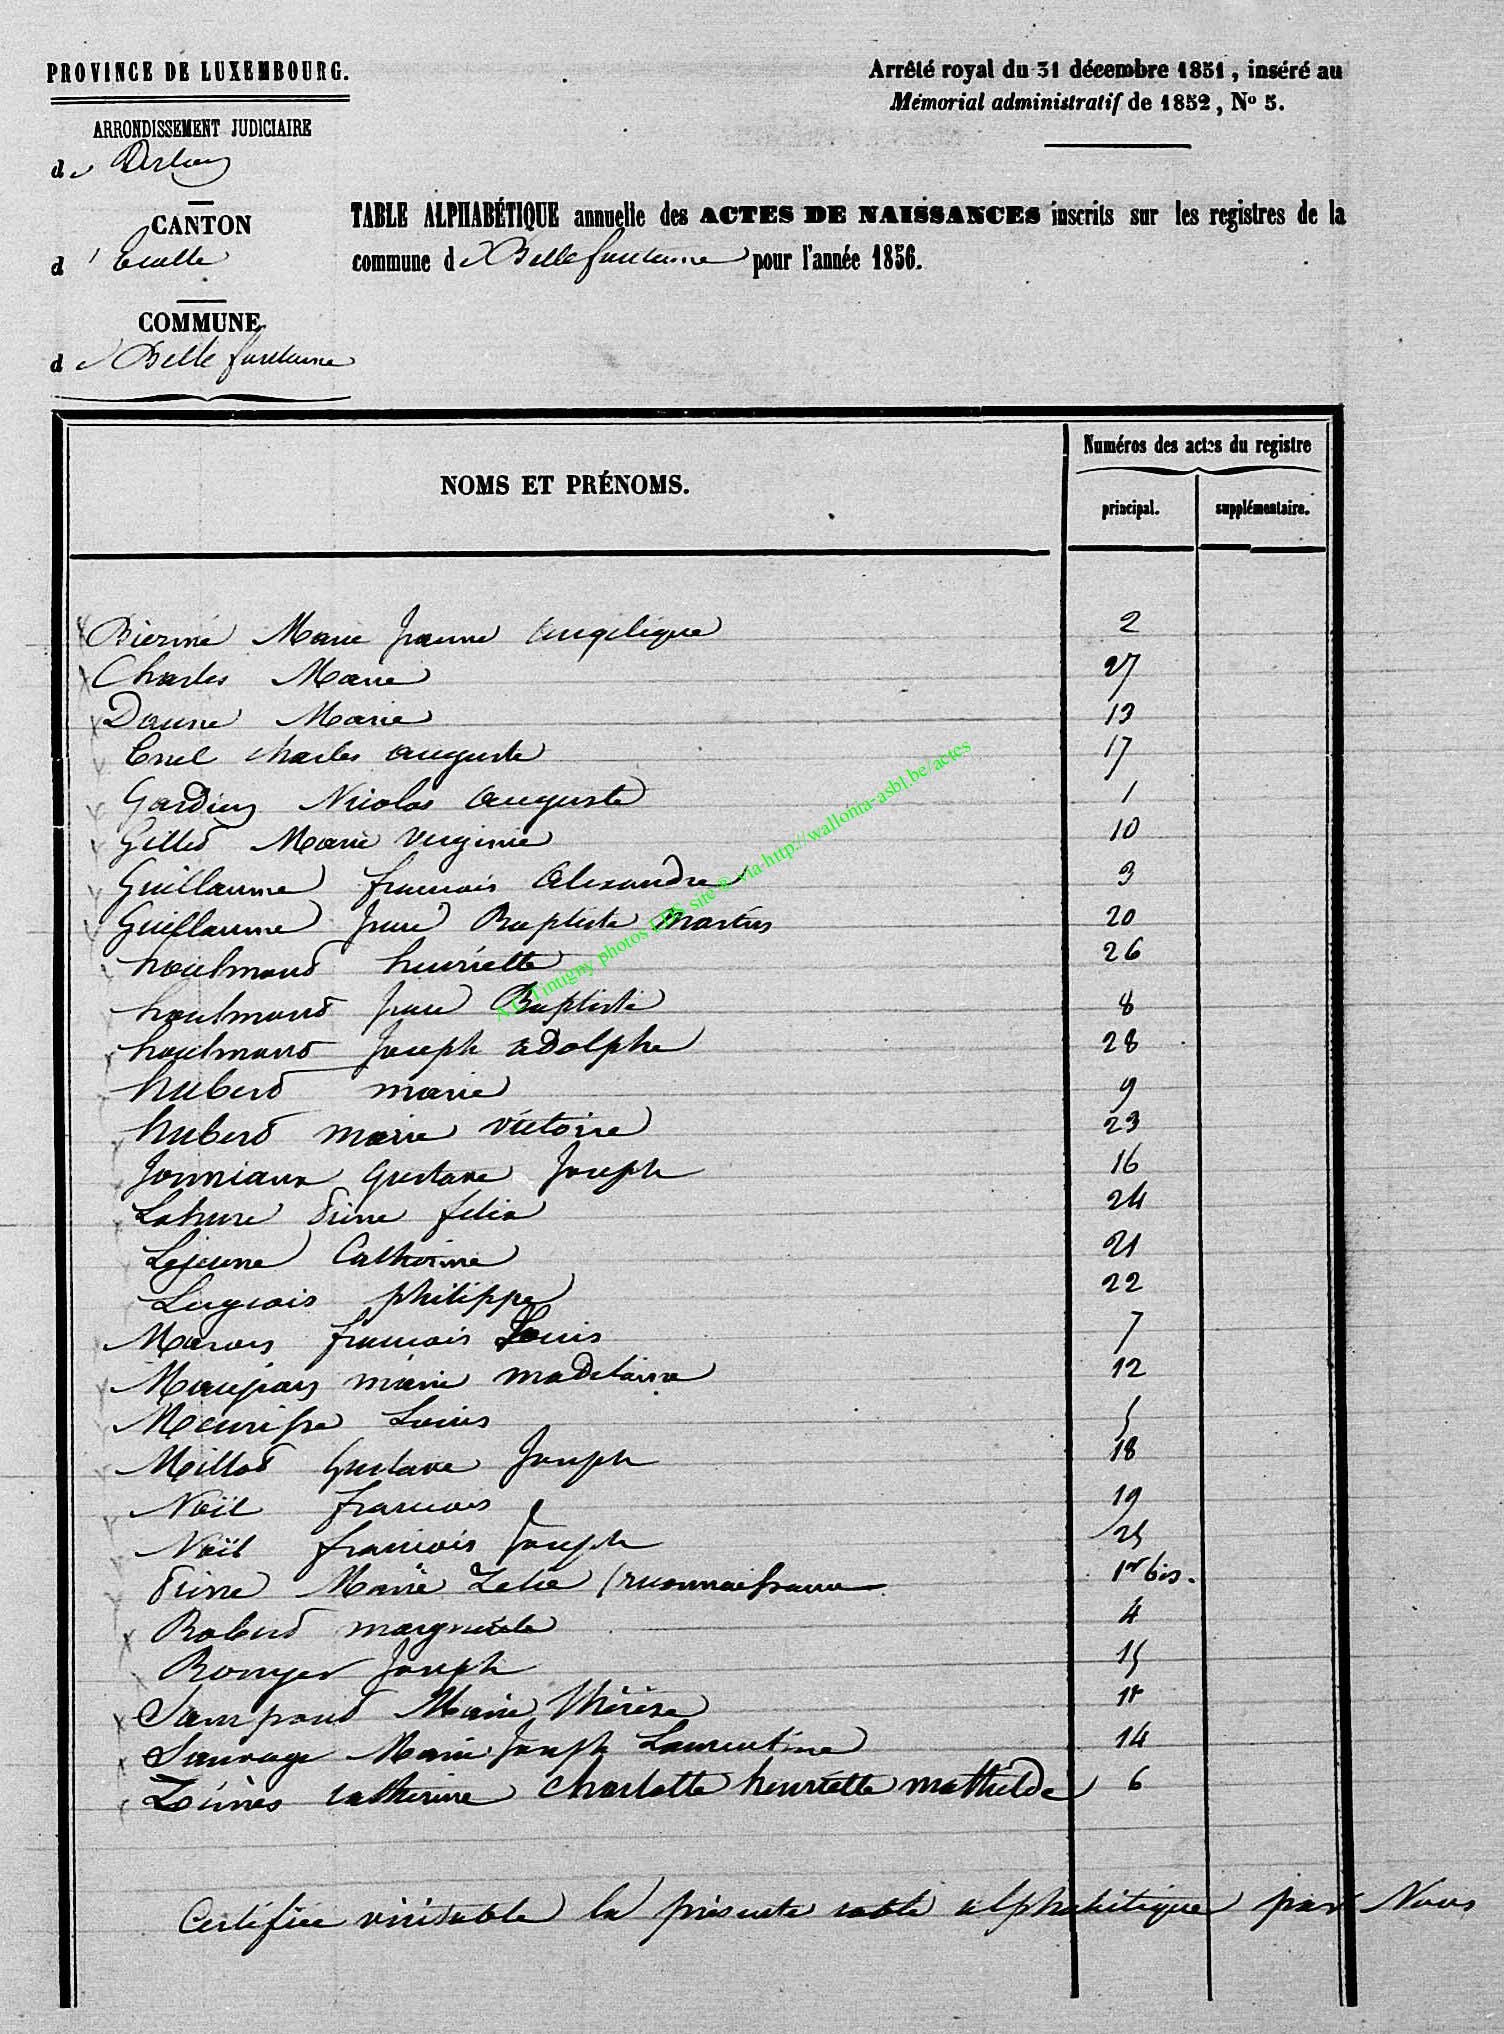 PROVINCE DE LUXEMBOURG.
Arrêté royal du 31 décembre 1851, inséré au
Mémorial administratif de 1852, Nº 5.
ARRONDISSEMENT JUDICIAIRE
d'Arlon
CANTON
d'Etalle
COMMUNE
de Bellefontaine
TABLE ALPHABÉTIQUE annuelle des ACTES DE NAISSANCES inscrits sur les registres de la
commune de Bellefontaine pour l'année 1856.
NOMS ET PRÉNOMS.
Numéros des actes du registre
principal. supplémentaire.
Biermé Marie Jeanne Angelique 2
Charles Marie 27
Daune Marie 13
Enel Charles Auguste 17
Gardien Nicolas Auguste 1
Gillet Marie Virginie 10
Guillaume francois Alexandre 3
Guillaume Jean Baptiste Martin 20
houlmond henriette 26
houlmond Jean Baptiste 8
houlmond Joseph adolphe 28
hubert marie 9
hubert marie victoire 23
Jonniaux Gustave Joseph 16
Lahure félix 24
Lejeune Catherine 21
philippe 22
francois Louis 7
Maujean marie madelaine 12
Meurisse Louis 5
Millot Gustave Joseph 18
Noël francois 19
Noël francois Joseph 25
Marie Zelie (reconnaissance 1er bis.
Robert marguerite 4
Ronger Joseph 15
Sampont Marie Thérèse 11
Sauvage Marie Joseph Laurentine 14
catherine Charlotte henriette mathilde 6
Certifiée véritable la présente table alphabétique par Nous
A.C. Tintigny photos LDS site © via http://wallonia-asbl.be/actes